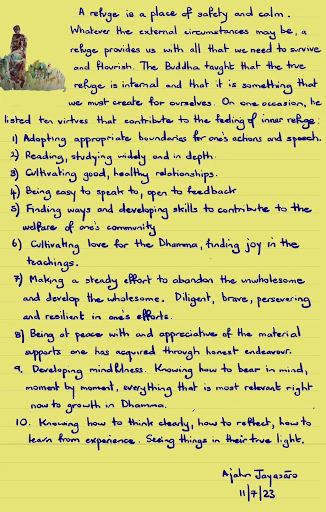 A refuge is a place of safety and calm.
Whatever the external circumstances may be, a
refuge provides us with all that we need to survive
and flourish. The Buddha taught that the true
refuge is internal and that it is something that
we must create for ourselves. On one occasion, he
listed ten virtues that contribute to the feeling of inner refuge:
1) Adopting appropriate boundaries for one's actions and speech.
2) Reading, studying widely and in depth.
3) Cultivating good, healthy relationships.
4) Being easy to speak to, open to feedback
5) Finding ways and developing skills to contribute to the
welfare of one's community
6) Cultivating love for the Dhamma, finding joy in the
teachings.
7) Making a steady effort to abandon the unwholesome
and develop the wholesome. Diligent, brave, persevering
and resilient in one's efforts.
8) Being at peace with and appreciative of the material
supports one has acquired through honest endeavour.
9. Developing mindfulness. Knowing how to bear in mind,
moment by moment, everything that is most relevant right
now to growth in Dhamma.
10. Knowing how to think clearly, how to reflect, how to
learn from experience. Seeing things in their true light.
Ajahn Jayasāro
11/7/23